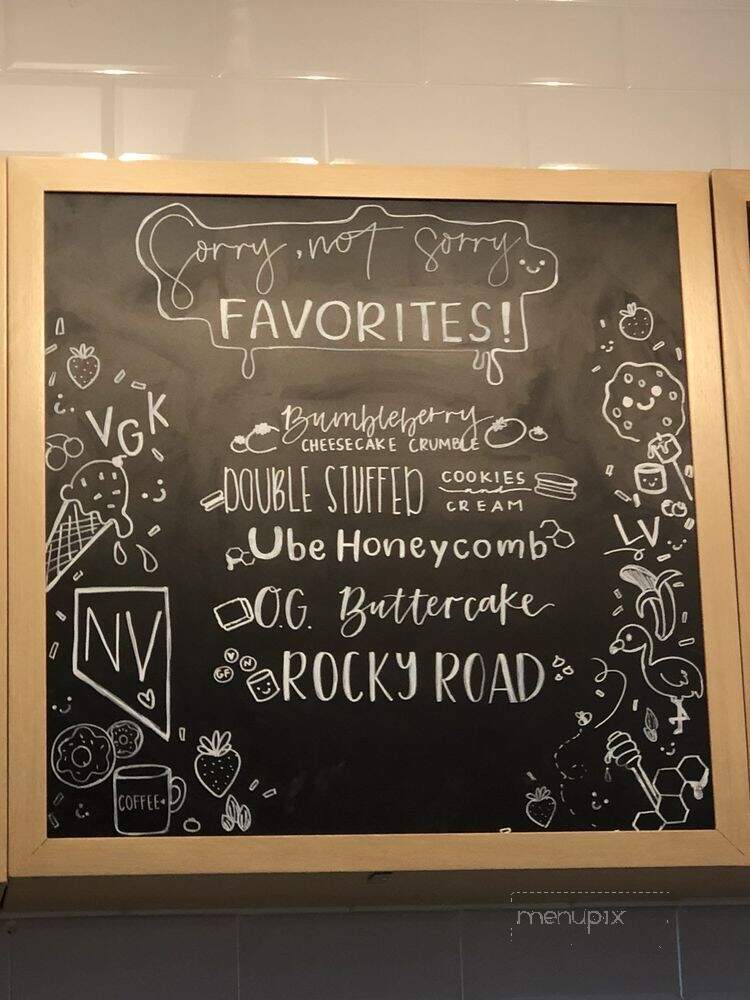 Sorry, not sorry
FAVORITES!
VGK
Bumbleberry
CHEESECAKE CRUMBLE
DOUBLE STUFFED COOKIES
and
CREAM
LV
Ube Honeycomb
O.G. Buttercake
NV
V N
GF
ROCKY ROAD
COFFEE
menupix